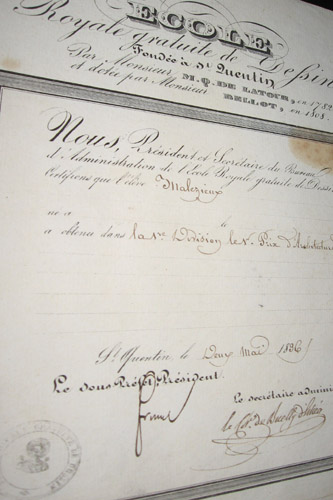 ECOLE
Royale gratuite de Dessin
Fondée à St Quentin
Par Monsieur M.Q. DE LATOUR, en 178
et dotée par Monsieur BELLOT, en 1808.
Nous, Président et Secrétaire du Bureau
d'Administration de l'Ecole Royale gratuite de Dessi
Certifions que l'élève Malézieux
né à le
a obtenu dans la 1re Division le 1er Prix d'Architecture
St Quentin, le Deux Mai 1836
Le sous Préfet Président. Le secrétaire admini